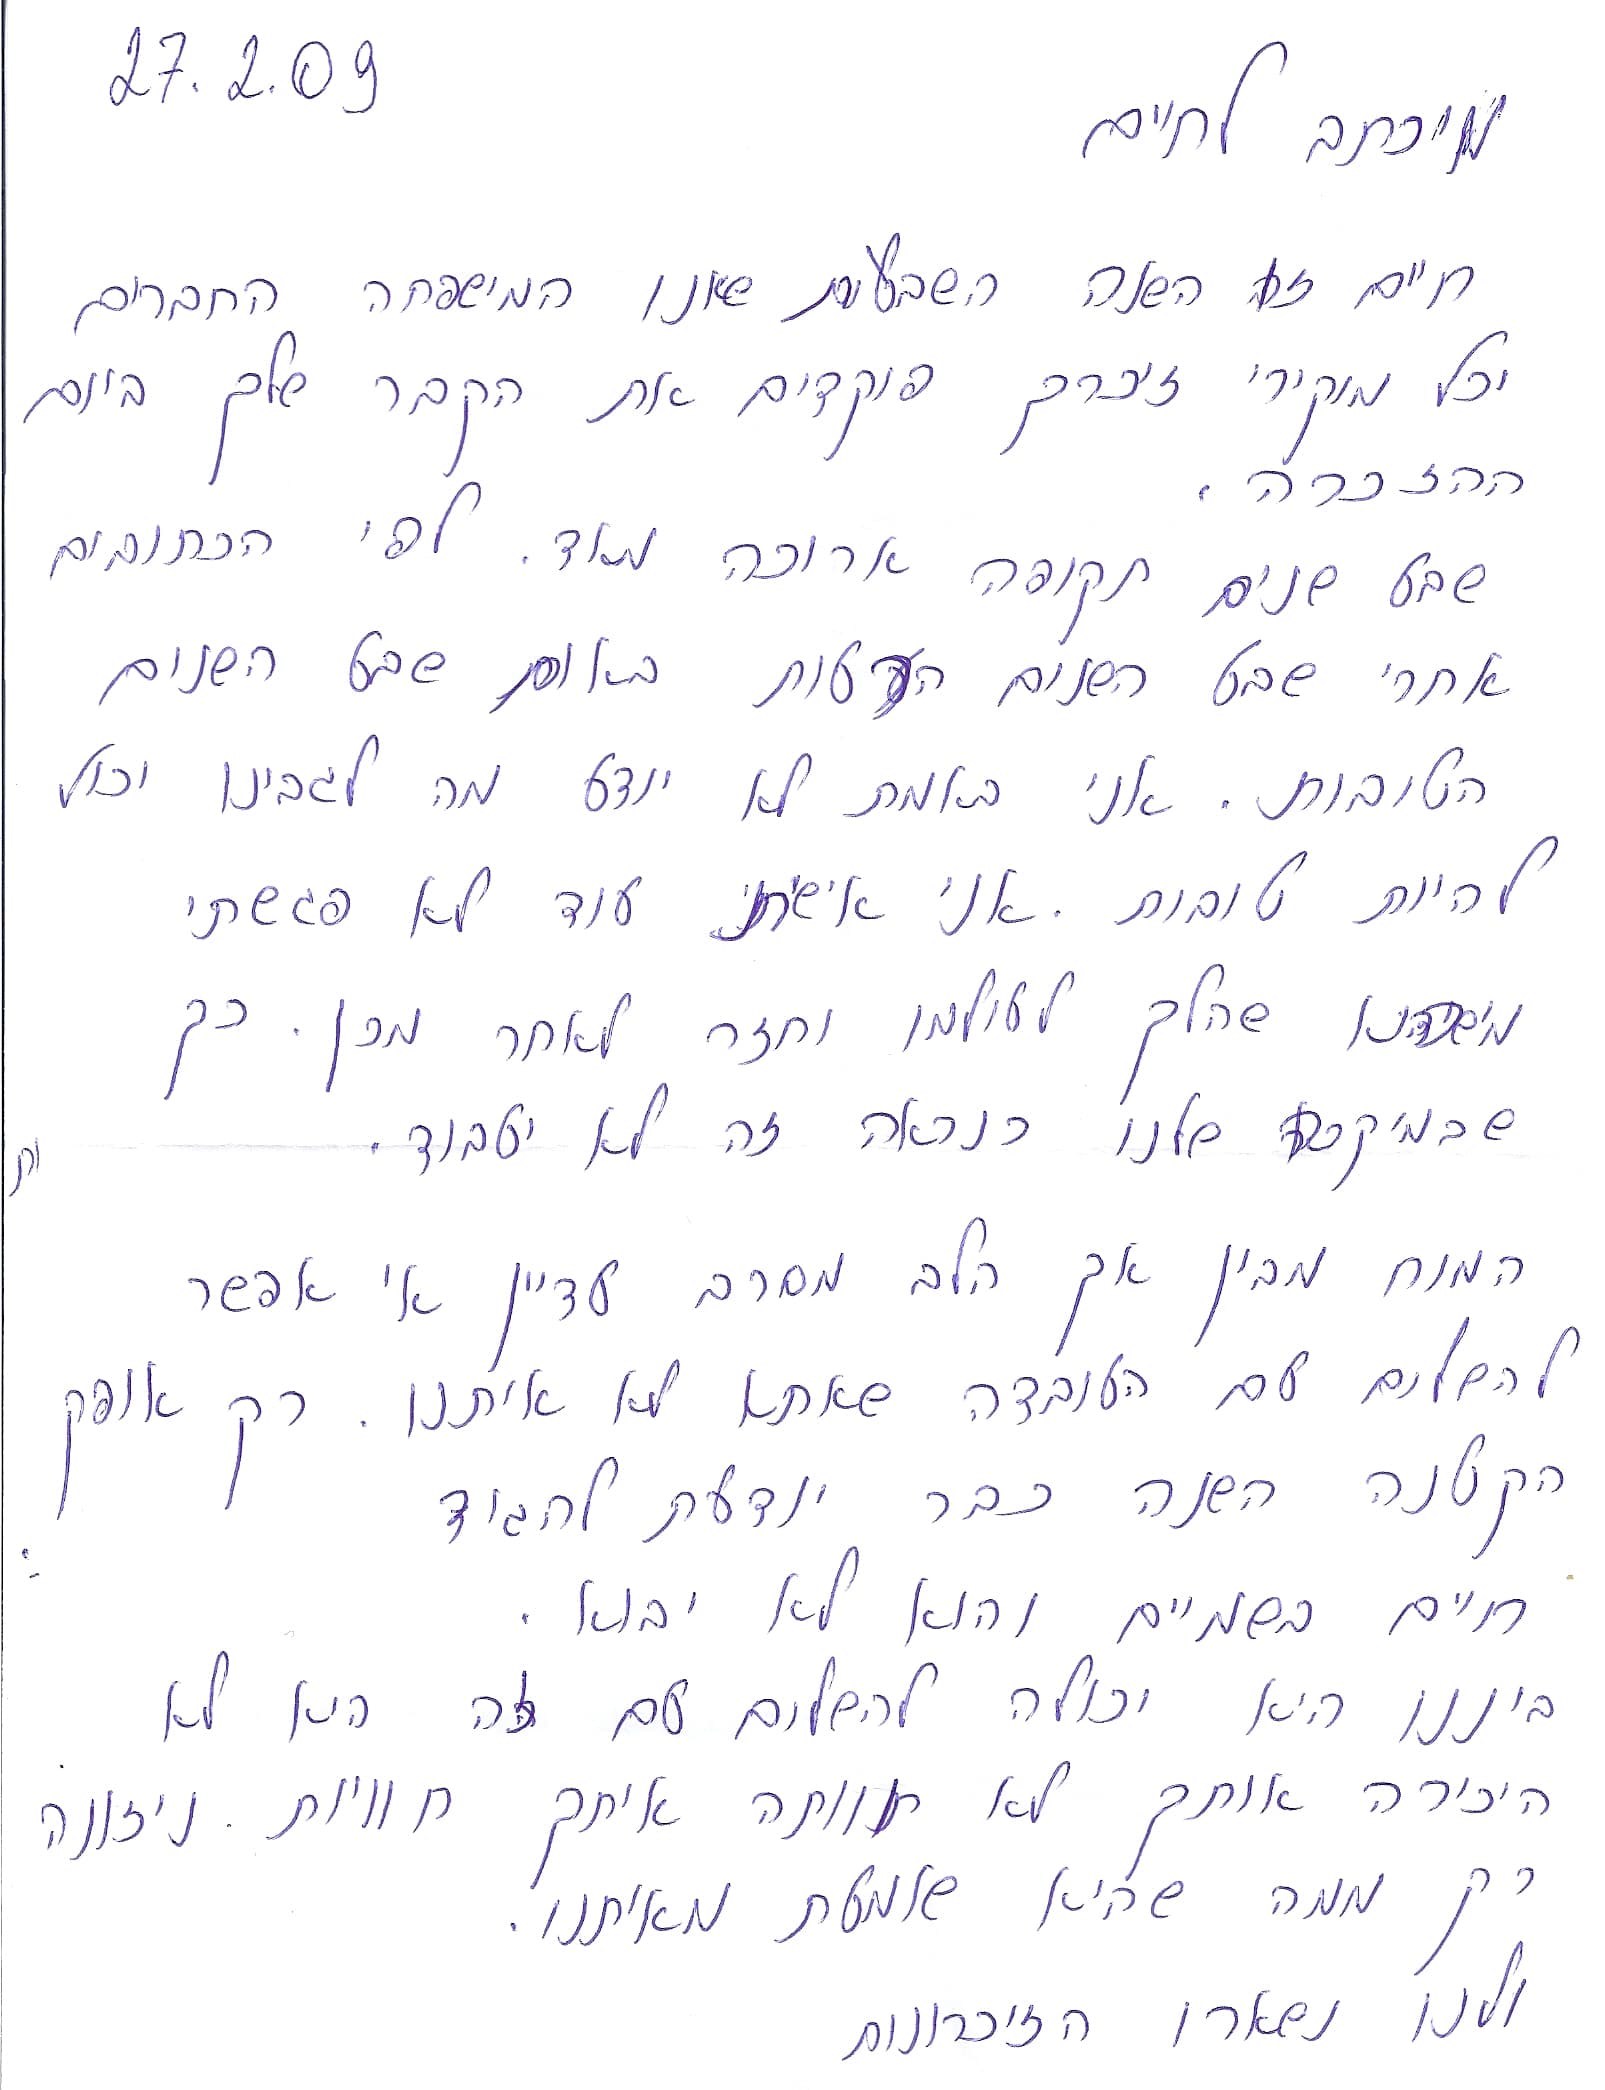 27.2.09
מיכתב לחיים
חיים זו השנה השבעית שאנו המישפחה החברים
וכל מוקירי זיכרך פוקדים את הקבר שלך ביום
ההזכרה.
שבע שנים תקופה ארוכה מאוד. לפי הכתובים
אחרי שבע השנים הרעות באות שבע השנים
הטובות. אני באמת לא יודע מה לגבינו יכול
להיות טובות. אני אישית עוד לא פגשתי
מישהוא שהלך לעולמו וחזר לאחר מכן. כך
שבמיקרה שלנו כנראה זה לא יעבוד.
המוח מבין אך הלב מסרב עדיין אי אפשר
להשלים עם העובדה שאתא לא איתנו. רק אופק
הקטנה השנה כבר יודעת להגיד
חיים בשמיים והוא לא יבוא.
ביננו היא יכולה להשלים עם זה היא לא
היכירה אותך לא חוותה איתך חוויות. ניזונה
רק ממה שהיא שומעת מאיתנו.
ולנו נשארו הזיכרונות